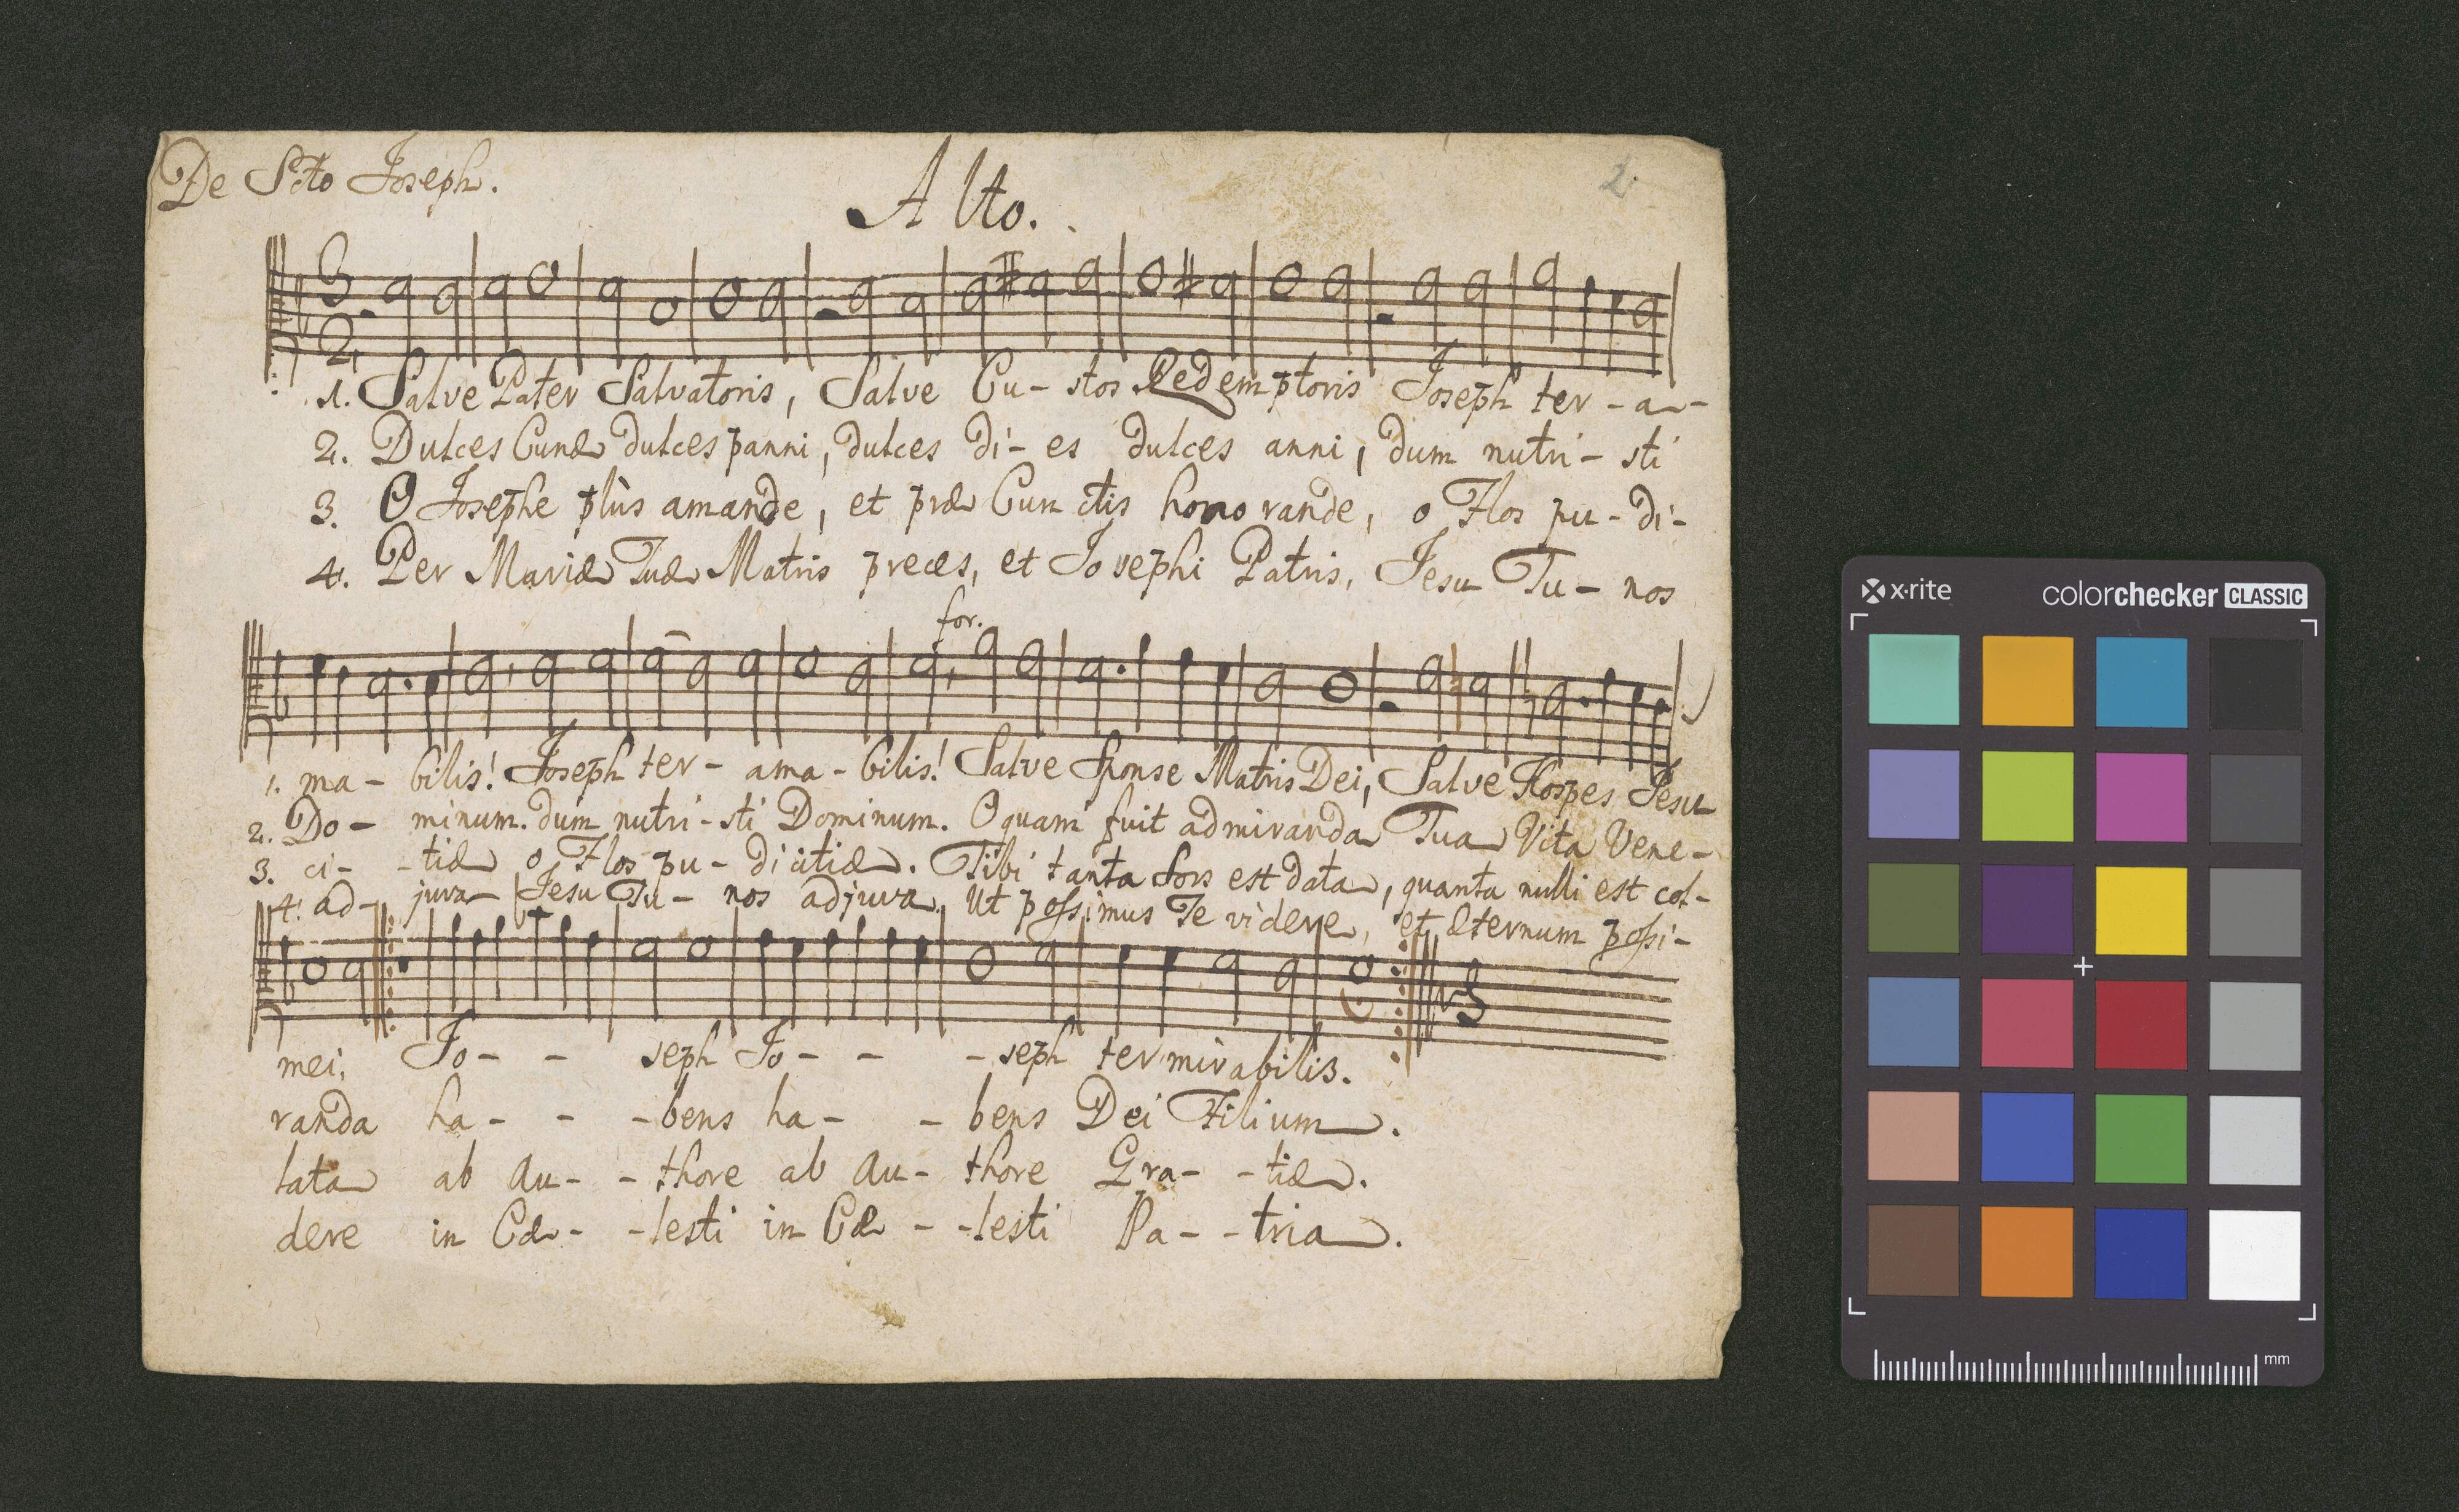 De Scto Joseph.
Alto.
2
3
2
1. Salve Pater Salvatoris, Salve Cu- stos Redemptoris Joseph ter - a -
2. Dulces Cunæ dulces panni, dulces di- es dulces anni, dum nutri- sti
3. O Josephe plùs amande, et præ Cun ctis honorande, o Flos pu- di-
4. Per Mariæ Tuæ Matris preces, et Josephi Patris, Jesu Tu- nos
for.
1. ma- bilis! Joseph ter- ama- bilis! Salve Sponse Matris Dei, Salve Hospes Jesu
2. Do- minum. dum nutri- sti Dominum. O quam fuit admiranda Tua Vita Vene-
3. ci- -tiæ o Flos pu- dicitiæ. Tibi tanta Sors est data, quanta nulli est col-
4. ad- juva- Jesu Tu- nos adjuva. Ut possimus Te videre, et æternum possi-
mei, Jo- - seph Jo- - -seph ter mirabilis.
randa ha- - -bens ha- -bens Dei Filium.
lata ab Au- -thore ab Au- thore Gra- -tiæ.
dere in Cæ- -lesti in Cæ - -lesti Pa- -tria.
x·rite colorchecker CLASSIC
mm